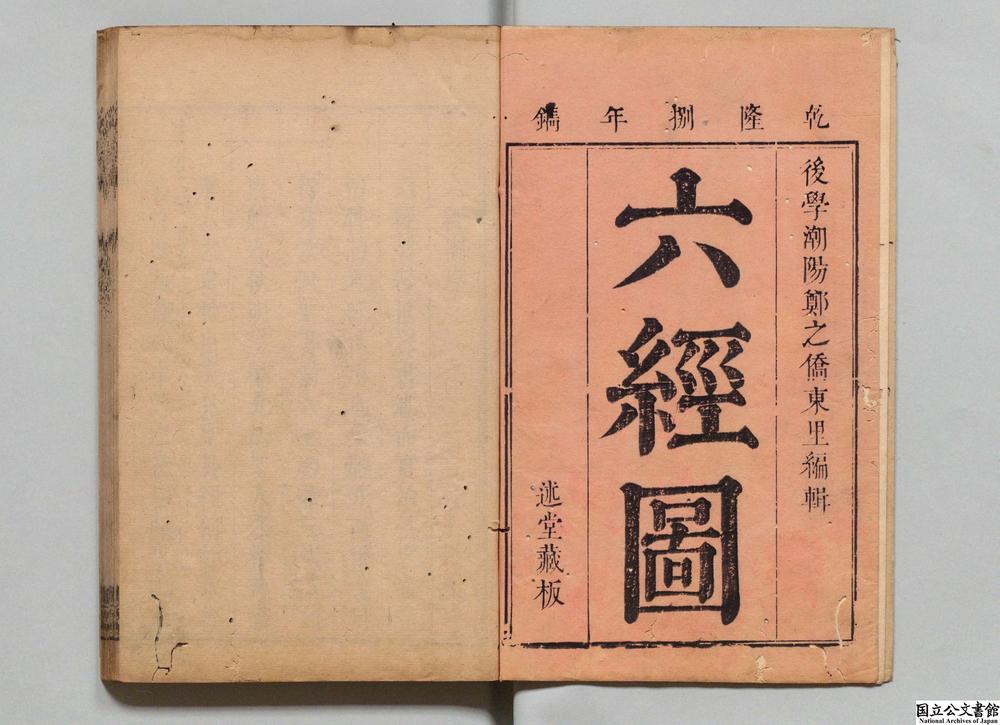 乾隆捌年鐫
後學潮陽鄭之僑東里編輯
六經圖
述堂藏板
国立公文書館
National Archives of Japan